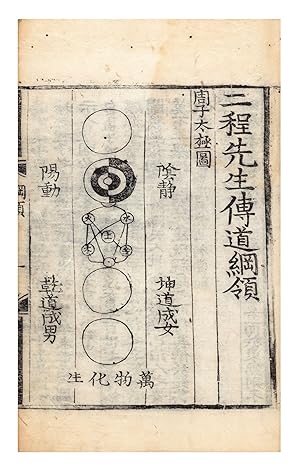 二程先生傳道綱領
周子太極圖
陰静
坤道成女
陽動
乾道成男
火
水
土
木
金
生化物萬
綱領